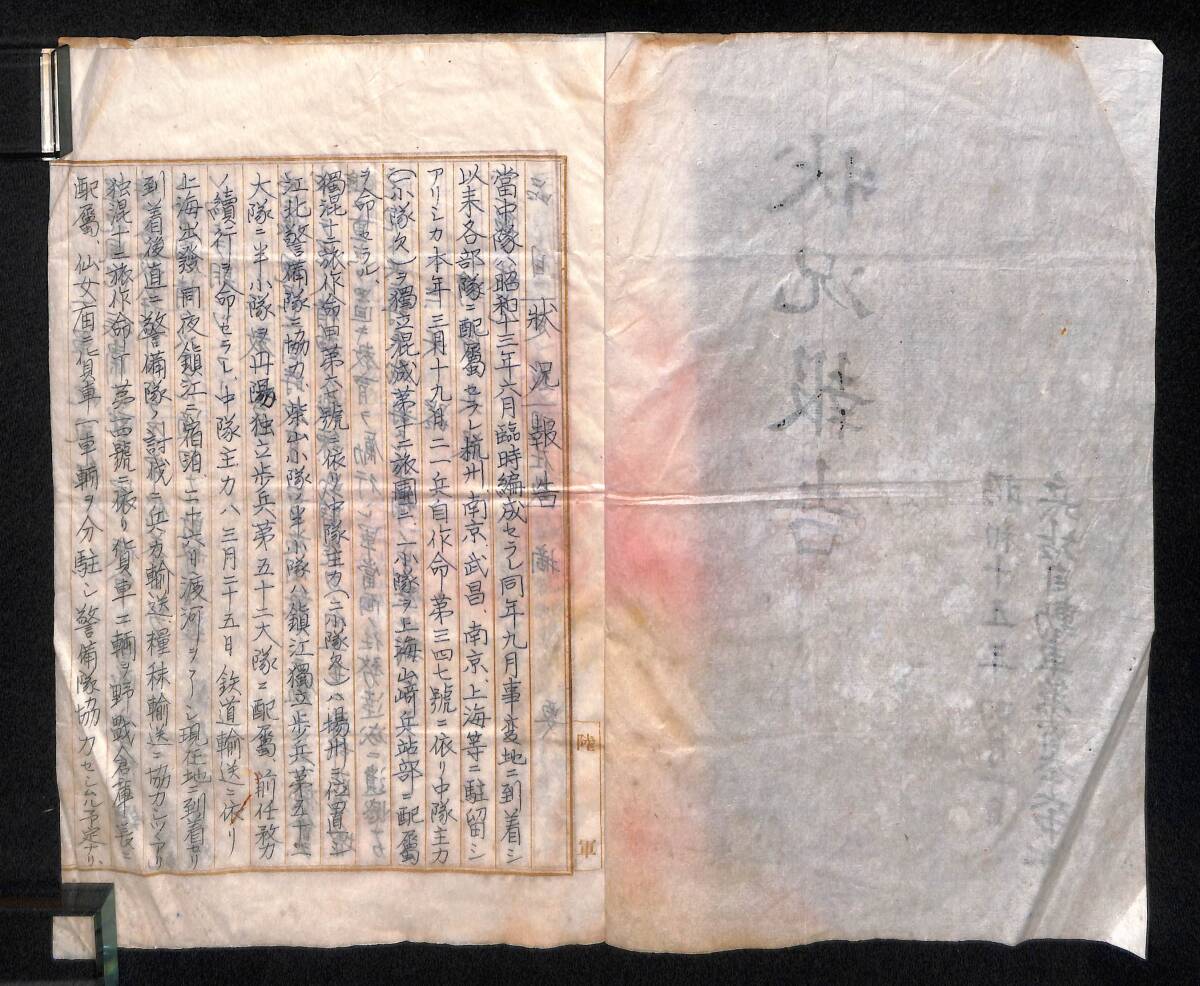 状況報告
當中隊ハ昭和十三年六月臨時編成セラレ同年九月事変地ニ到着シ
以来各部隊ニ配屬セラレ杭州、南京、武昌、南京、上海等ニ駐留シ
アリシカ本年三月十九日二一兵自作命第三四七號ニ依リ中隊主力
(一小隊欠)ヲ獨立混成第十二旅團ニ、一小隊ヲ上海山崎兵站部ニ配屬
ヲ命セラル、
獨混十二旅作命甲第六七號ニ依リ中隊主力(二小隊欠)ハ揚州ニ位置シ
江北警備隊ニ協力、柴山小隊ノ半小隊ハ鎮江獨立歩兵第五十
大隊ニ半小隊ハ丹陽独立歩兵第五十二大隊ニ配屬、前任務
ノ續行ヲ命セラレ、中隊主力ハ三月二十五日鉄道輸送ニ依リ
上海出發同夜鎮江ニ宿泊二十六日渡河ヲ了シ現在地ニ到着セリ
到着後直ニ警備隊ノ討伐ニ兵力輸送、糧秣輸送ニ協力シツツアリ
独混十二旅作命丁第西號ニ依リ貨車二輌ヲ野戰倉庫長ニ
配屬、仙女庙ニ貨車一車輌ヲ分駐シ警備隊協力セシムル予定ナリ、
陸軍
状況報告
昭和十五年